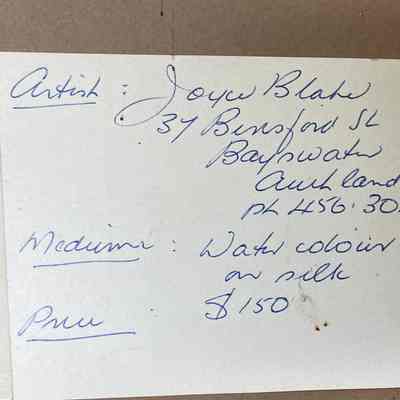 Artist : Joyce Blake
37 Beresford St
Bayswater
Auckland
ph 456·30
Medium : Water colour
on silk
Price $150